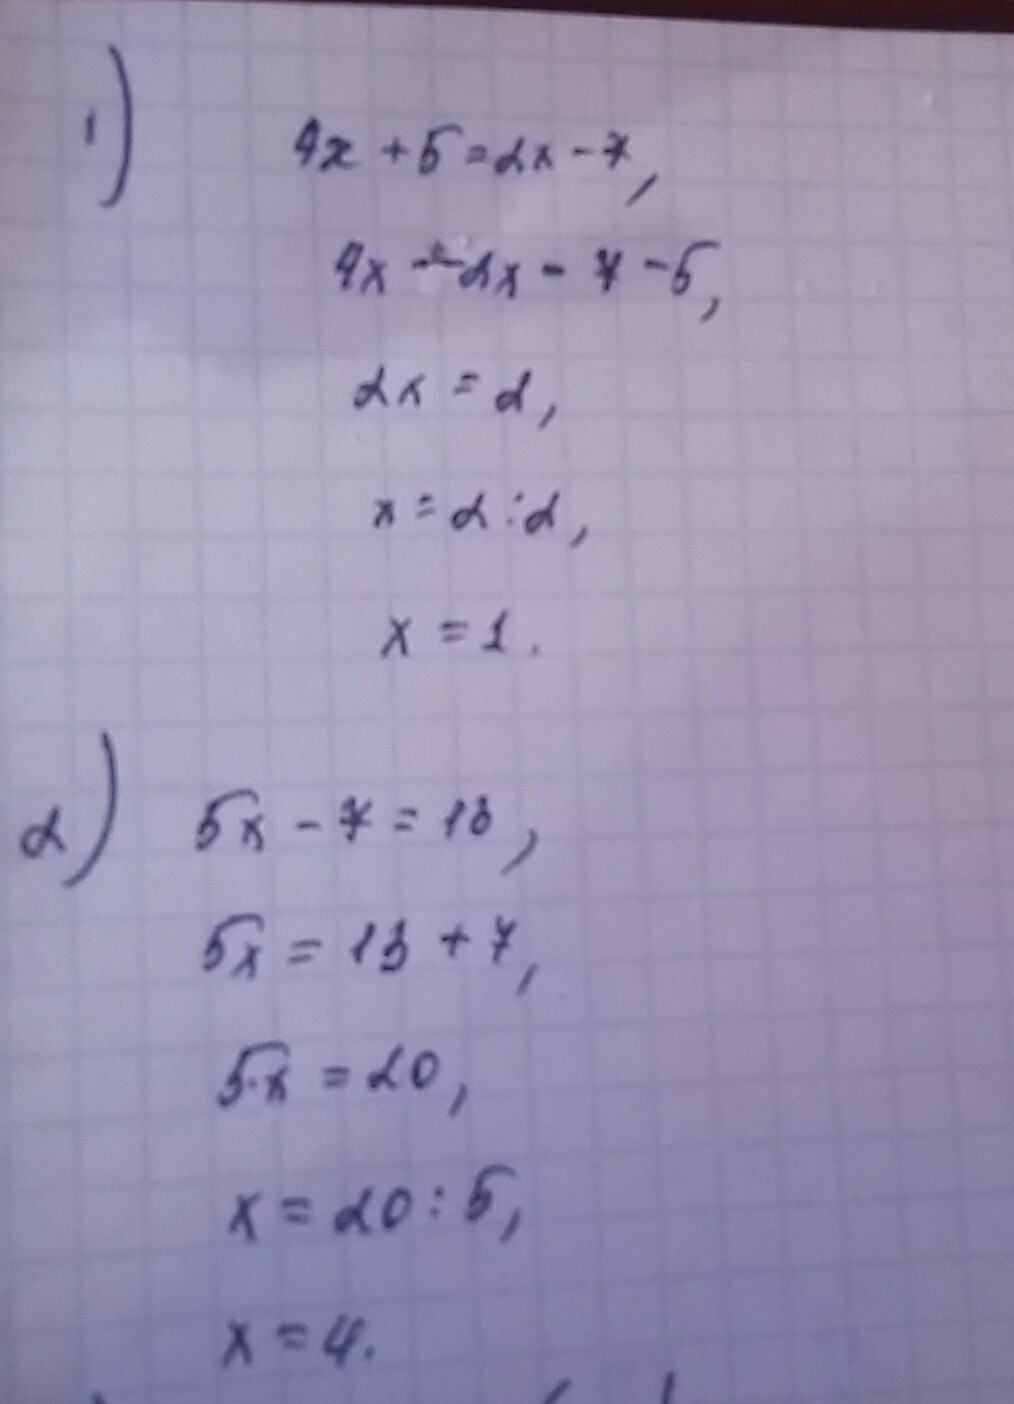 1) 4x + 5 = 2x - 7,
4x - 2x = 7 - 5,
2x = 2,
x = 2 : 2,
x = 1.
2) 5x - 7 = 13,
5x = 13 + 7,
5x = 20,
x = 20 : 5,
x = 4.